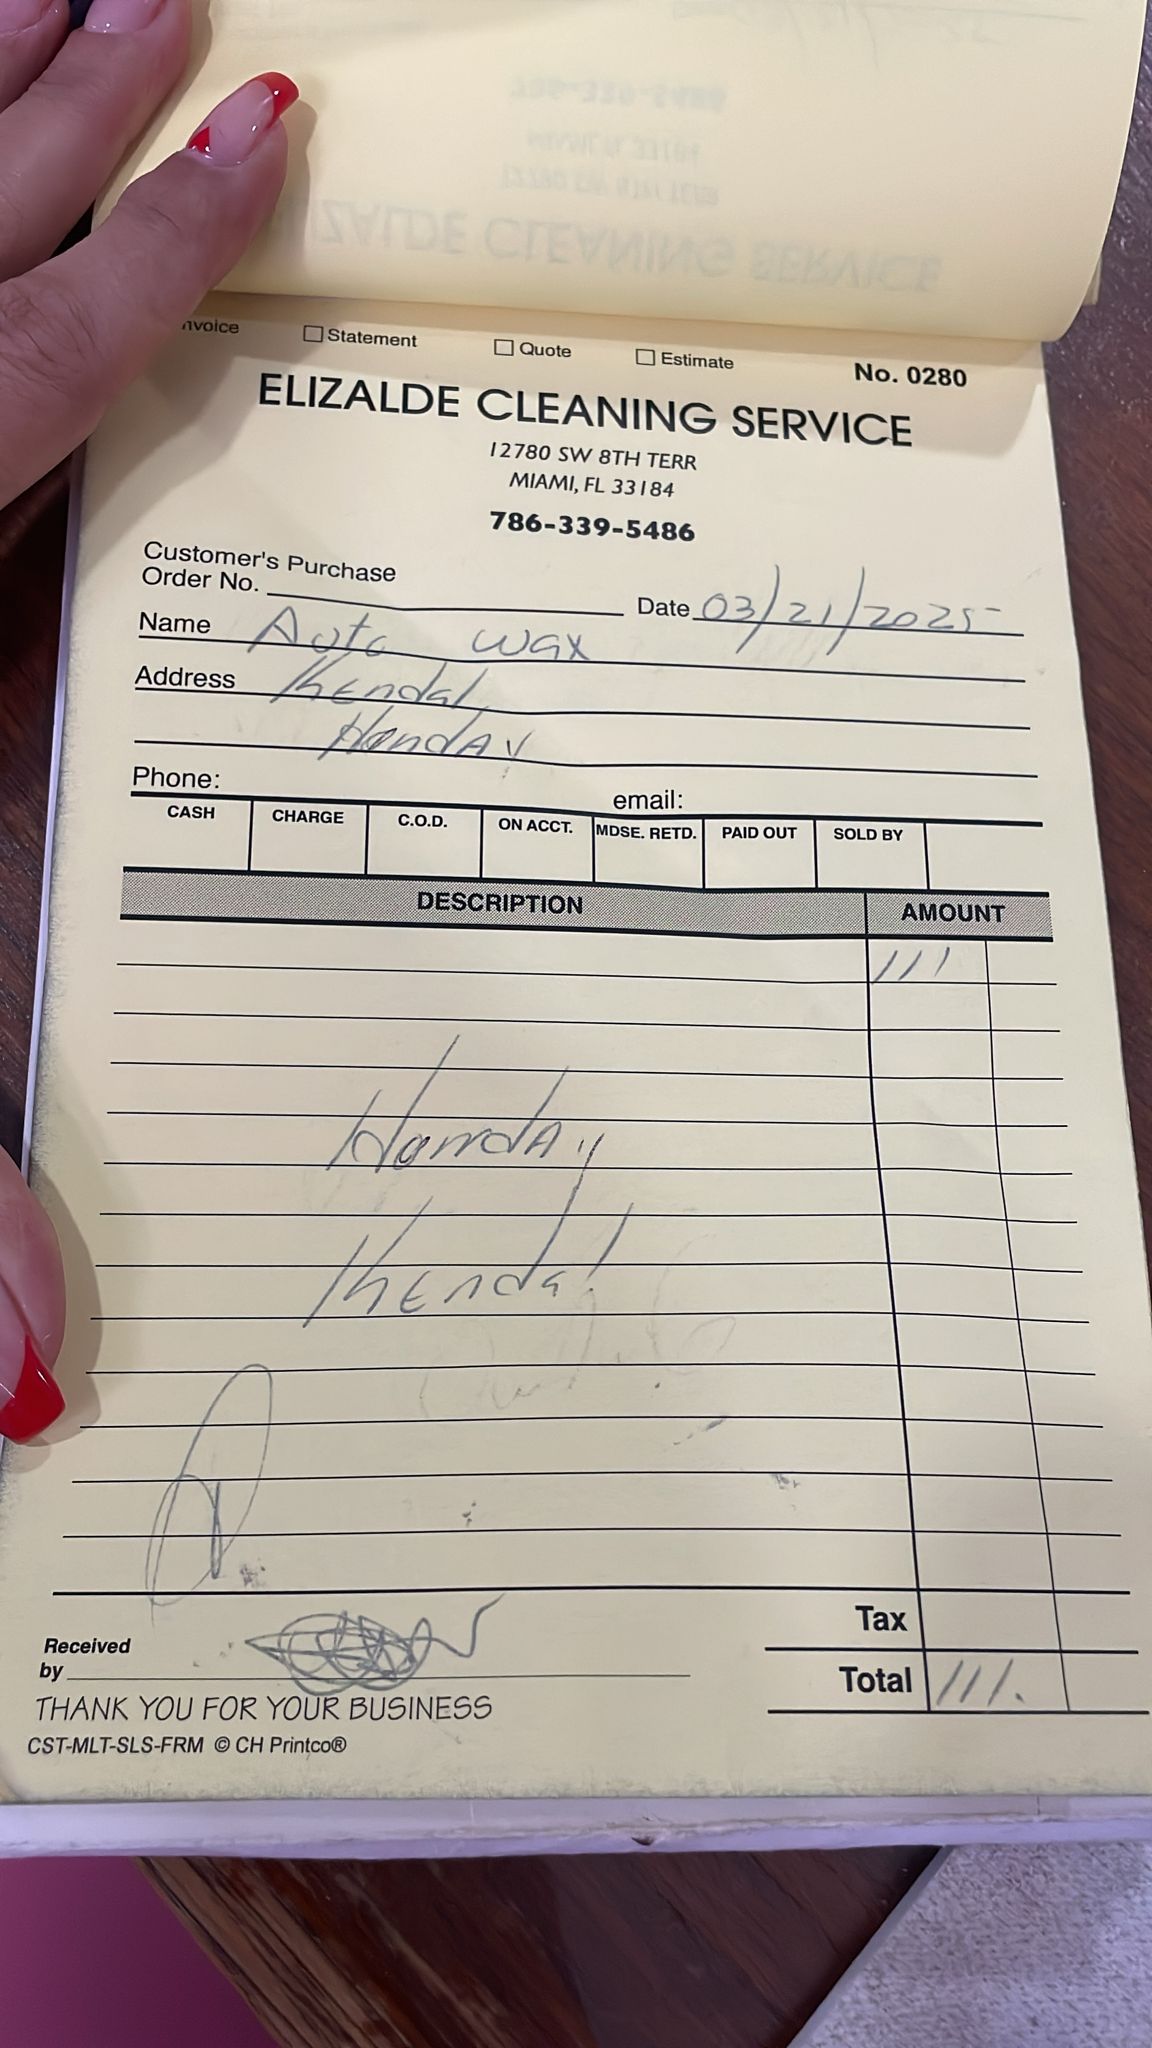 nvoice ☐ Statement ☐ Quote ☐ Estimate No. 0280
ELIZALDE CLEANING SERVICE
12780 SW 8TH TERR
MIAMI, FL 33184
786-339-5486
Customer's Purchase
Order No. Date 03/21/2025
Name Auto wax
Address Kendal
Honday
Phone: email:
CASH CHARGE C.O.D. ON ACCT. MDSE. RETD. PAID OUT SOLD BY
DESCRIPTION AMOUNT
111
Honday
Kendal
Tax
Received
by
Total 111.
THANK YOU FOR YOUR BUSINESS
CST-MLT-SLS-FRM © CH Printco®